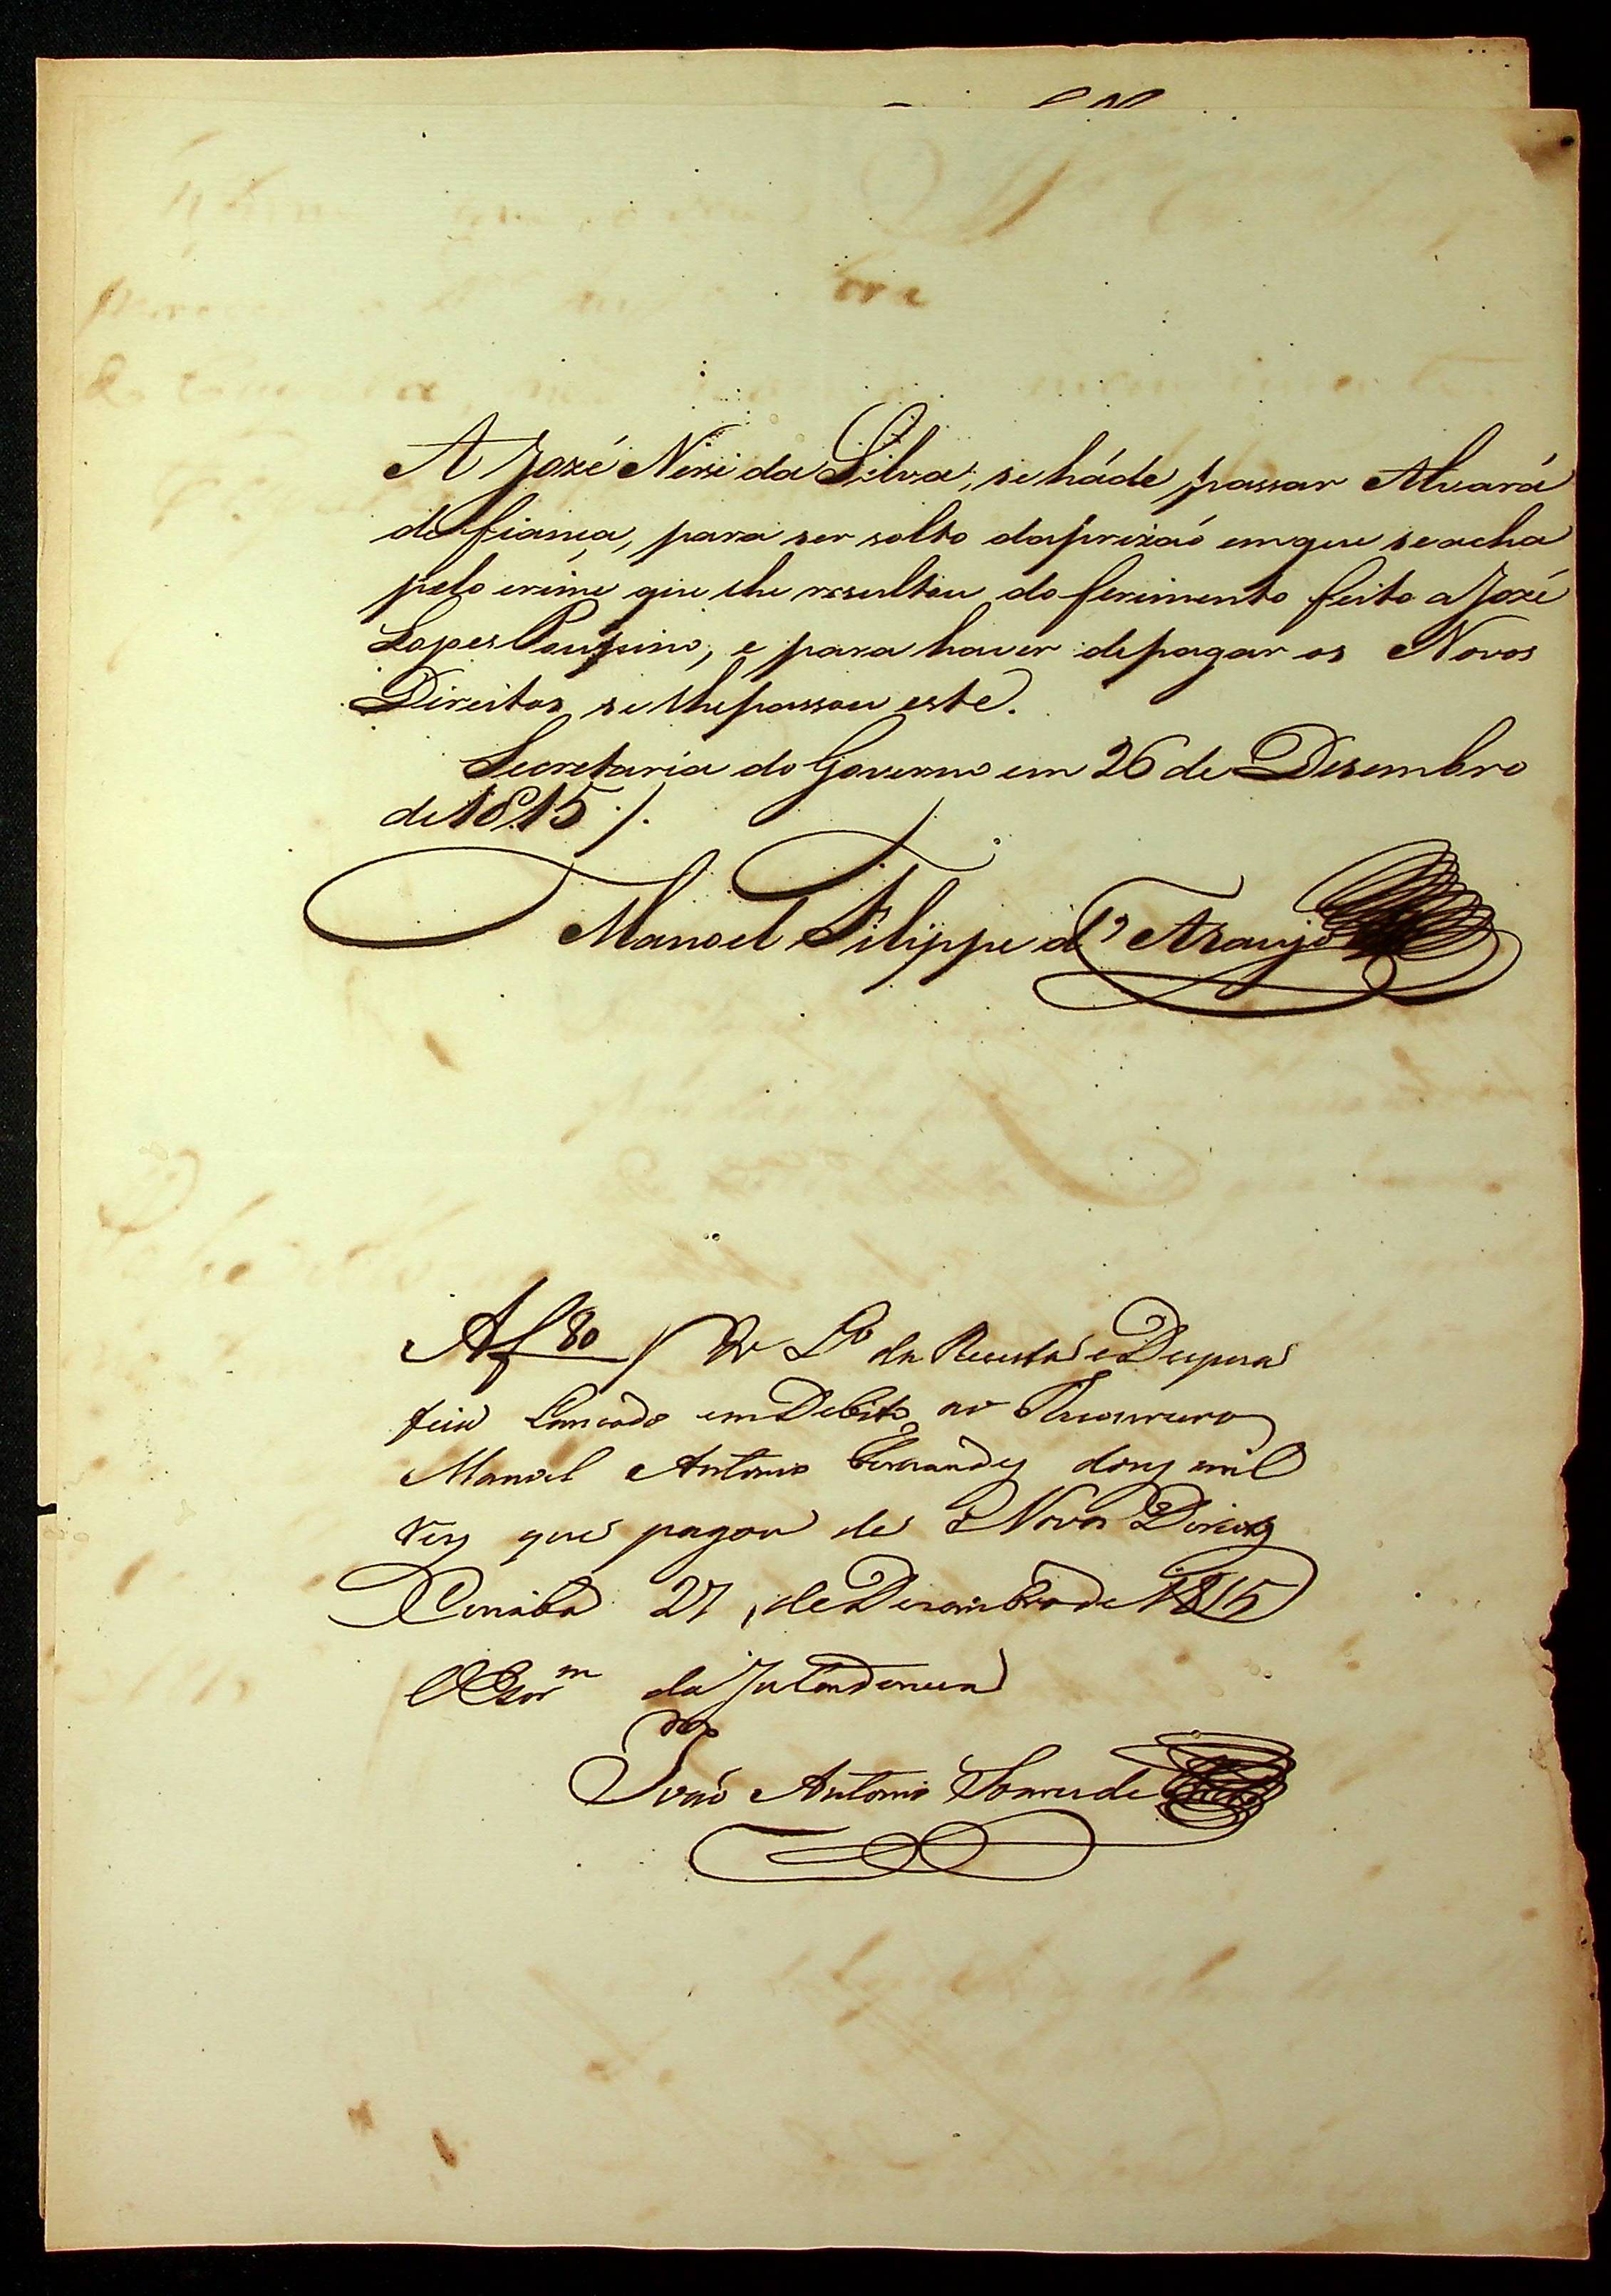 A Jozé Neri da Silva, se háde passar Alvará
de fiança, para ser solto daprizaõ emque seacha
pelo crime que lhe resultou do ferimento feito a Jozé
Lopes, e para haver depagar os Novos
Direitos se lhepassou este.
Secretaria do Governo em 26 de Desembro
de 1815 /.
Manoel Filippe d' Araujo
Af 80 / do Lº da Receita e Despeza
fica Lancado em Debito ao Thizoureiro
Manoel Antonio Fernandes dous mil
reis que pagou de Novos Direitos
Cuiabá 27 de Dezembro de 1815
da Intendencia
João Antonio